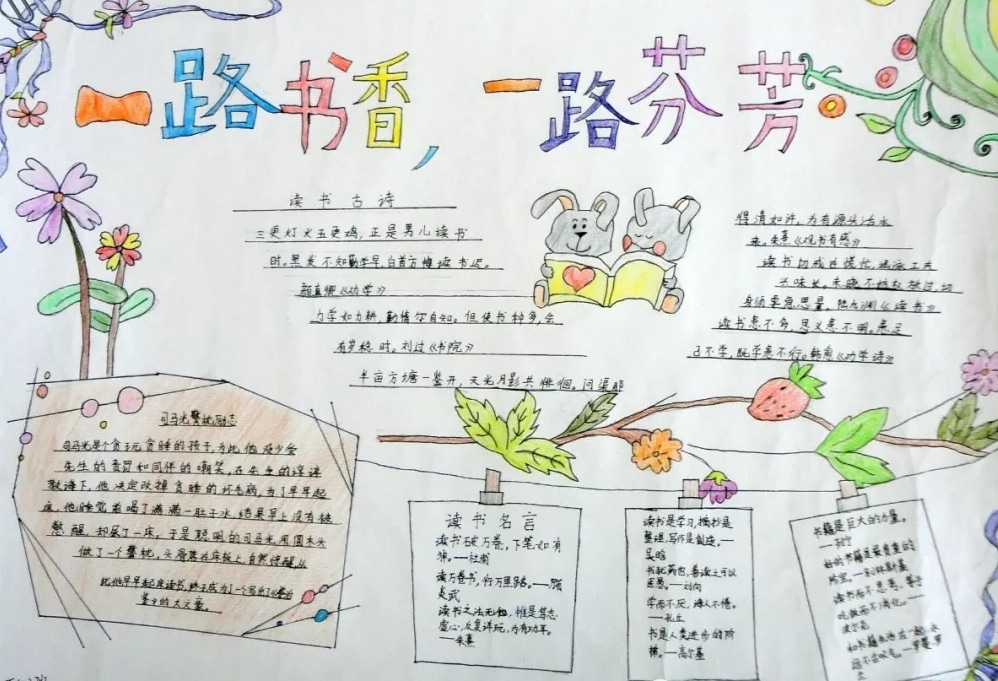 一路书香，一路芬芳
读书古诗
三更灯火五更鸡，正是男儿读书
时。黑发不知勤学早，白首方悔读书迟。
颜真卿《劝学》
力学如力耕，勤惰尔自知。但使书种多，会
有岁稔时。刘过《书院》
半亩方塘一鉴开，天光月影共徘徊。问渠那
得清如许，为有源头活水
来。朱熹《观书有感》
读书切戒在慌忙，涵泳工夫
兴味长。未晓不妨权放过，切
身须要急思量。陆九渊《读书》
读书患不多，思义患不明。患足
己不学，既学患不行。韩愈《劝学诗》
司马光警枕励志
司马光是个贪玩贪睡的孩子，为此他没少受
先生的责罚和同伴的嘲笑，在先生的谆谆
教诲下，他决定改掉贪睡的坏毛病，为了早早起
床，他睡觉前喝了满满一肚子水，结果早上没有被
憋醒，却尿了一床，于是聪明的司马光用圆木头
做了一个警枕，头滑落在床板上，自然惊醒，从
此他早早起床读书，终于成为了一个写出了《资治
鉴》的大文豪。
读书名言
读书破万卷，下笔如有
神。——杜甫
读万卷书，行万里路。——顾
炎武
读书之法无他，惟是笃志
虚心，反复详玩，为有功耳。
——朱熹
读书是学习，摘抄是
整理，写作是创造。——
吴晗
书犹药也，善读之可以
医愚。——刘向
学而不厌，诲人不倦。
——孔丘
书是人类进步的阶
梯。——高尔基
书籍是巨大的力量。
——列宁
好的书籍是最贵重的
珍宝。——别林斯基
读书而不思考，等于
吃饭而不消化。——
波尔克
和书籍生活在一起，永
远不会叹气。——罗曼罗
兰